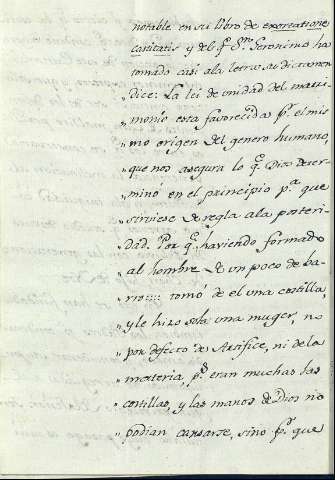 notable en su libro de exoreatione
castitatis y del q.e S.n Geronimo ha
tomado casi ala letra su dictamen
" dice: La lei de unidad del matri
" monio esta favorecida p.r el mis
" mo origen del genero humano,
" que nos asegura lo q.e Dios deter-
" minó en el principio p.a que
" sirviese de regla ala posteri-
" dad. Por q.e haviendo formado
" al hombre de un poco de ba-
" rro:::: tomó de el una costilla
" y le hizo sola una muger, no
" por defecto de Artifice, ni de la
" materia, p.s eran muchas las
" costillas, y las manos de Dios no
" podian cansarse, sino p.r que